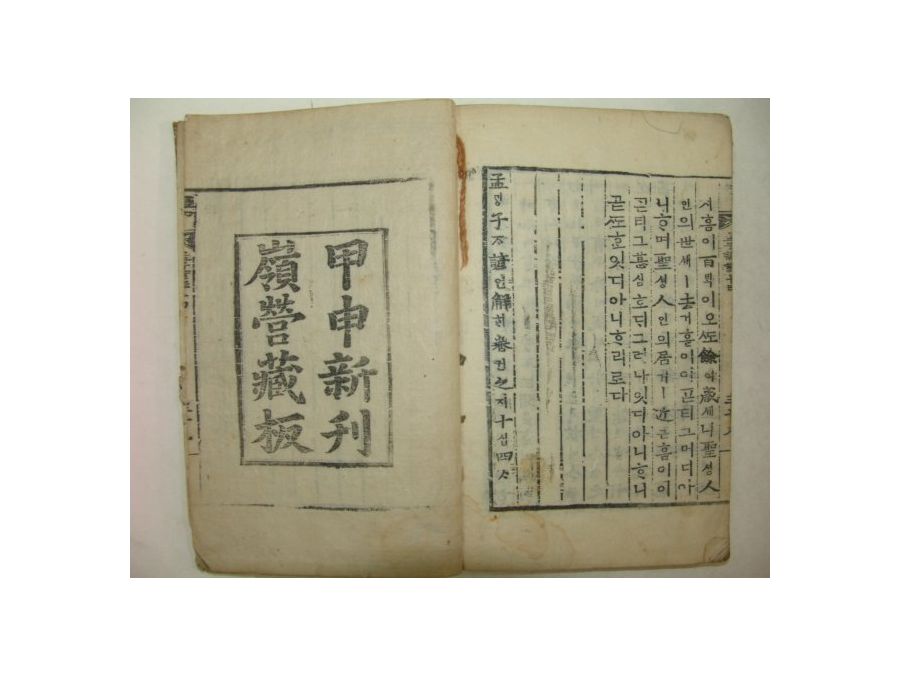 서흠이百ᄇᆡᆨ이오ᄯᅩ餘여歲셰니聖셩人
인의世셰ㅣ去거흠이이ᄀᆞᆮ티그머디아
니ᄒᆞ며聖셩人인의居거ㅣ近근흠이이
ᄀᆞᆮ티그甚심호ᄃᆡ그러나잇디아니ᄒᆞ니
곧ᄯᅩᄒᆞᆫ잇디아니ᄒᆞ리로다
孟ᄆᆡᆼ子ᄌᆞ諺언解ᄒᆡ卷권之지十십四ᄉᆞ
甲申新刊
嶺營藏板